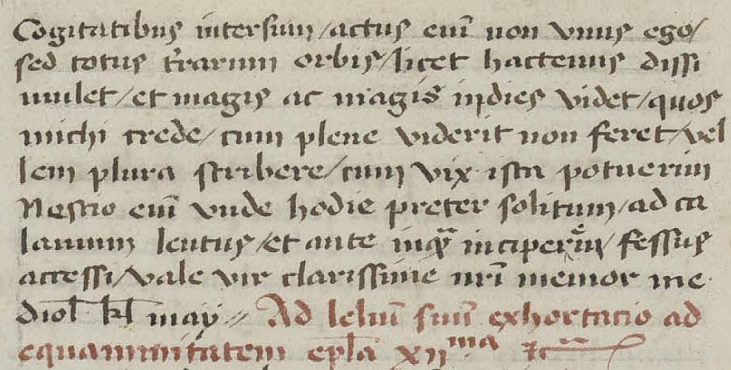 Cogitatibus intersum / actus eni̅ non vnus ego /
sed totus t̕rarum orbis / licet hactenus dissi
mulet / et magis ac magis indies videt / quos
michi crede / cum plene viderit non feret / vel
lem plura scribere / cum vix ista potuerim
Nescio eni̅ vnde hodie preter solitum / ad ca
lamum lentus / et ante inciperem / fessus
accessi / vale vir clarissime nr̅i memor me
diol̅ kl̅ maij Ad leliu̅ suu̅ exhortacio ad
equanimitatem ep̅la xii^ma